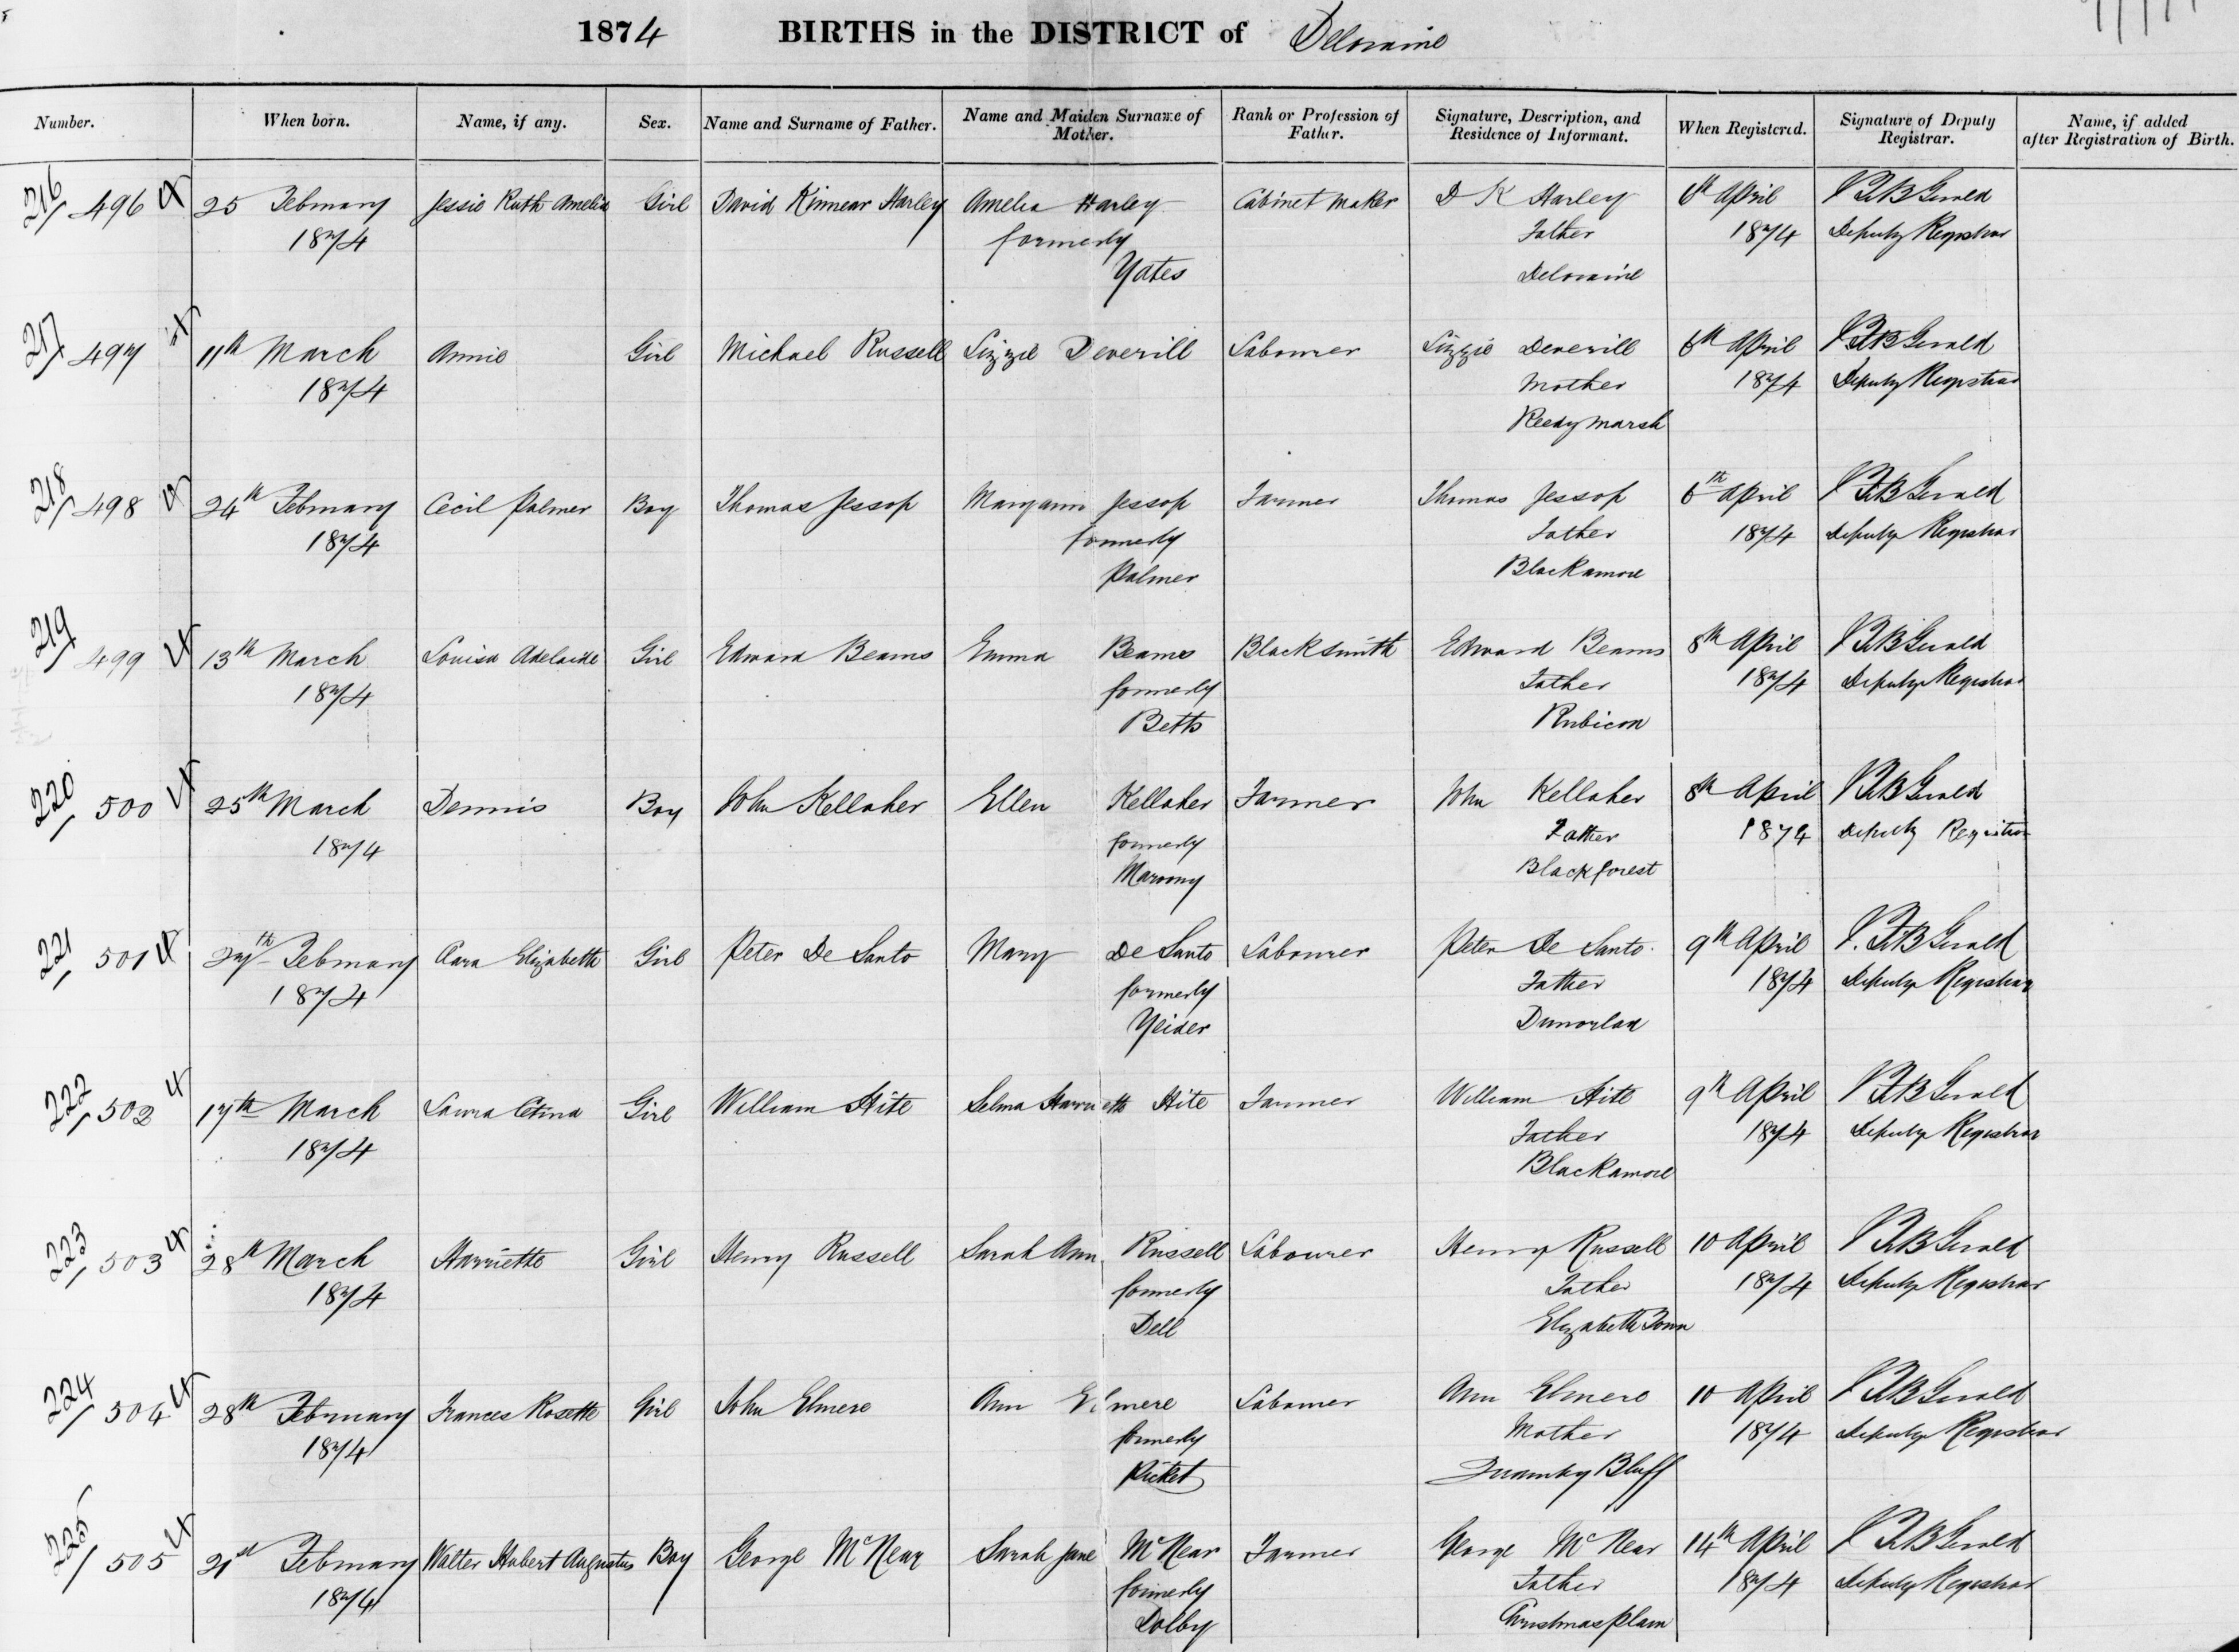 1874 BIRTHS in the DISTRICT of Deloraine
Number. When born. Name, if any. Sex. Name and Surname of Father. Name and Maiden Surname of Mother. Rank or Profession of Father. Signature, Description, and Residence of Informant. When Registered. Signature of Deputy Registrar. Name, if added after Registration of Birth.
216/ 496 25 February Jessie Ruth Amelia Girl David Kinnear Harley Amelia Harley Cabinet Maker D K Harley 6th April
1874 formerly Father 1874 Deputy Registrar
Yates Deloraine
217/ 497 11th March Annie Girl Michael Russell Lizzie Deverill Labourer Lizzie Deverill 6th April
1874 Mother 1874 Deputy Registrar
Reedy Marsh
218/ 498 24th February Cecil Palmer Boy Thomas Jessop Maryann Jessop Farmer Thomas Jessop 6th April
1874 formerly Father 1874 Deputy Registrar
Palmer Blackamore
219/ 499 13th March Louisa Adelaide Girl Edward Beams Emma Beams Blacksmith Edward Beams 8th April
1874 formerly Father 1874 Deputy Registrar
Betts Rubicon
220/ 500 25th March Dennis Boy John Kellaher Ellen Kellaher Farmer John Kellaher 8th April
1874 formerly Father 1874 Deputy Registrar
Black forest
221/ 501 27th February Elizabeth Girl Peter De Santo Mary De Santo Labourer Peter De Santo 9th April
1874 formerly Father 1874 Deputy Registrar
Dunorlan
222/ 502 17th March Laura Girl William Hite Selma Harriett Hite Farmer William Hite 9th April
1874 Father 1874 Deputy Registrar
Blackamore
223/ 503 28th March Harriette Girl Henry Russell Sarah Ann Russell Labourer Henry Russell 10 April
1874 formerly Father 1874 Deputy Registrar
Dell Elizabeth Town
224/ 504 28th February Frances Rosetta Girl John Elmere Ann Elmere Labourer Ann Elmere 10 April
1874 formerly Mother 1874 Deputy Registrar
Picket Quamby Bluff
225/ 505 21st February Walter Hubert Augustus Boy George McNear Sarah Jane McNear Farmer George McNear 14th April
1874 formerly Father 1874 Deputy Registrar
Dolby Christmas plain